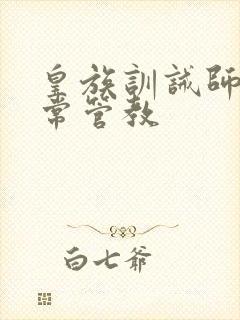 皇族訓誡師
常管教
白七爷